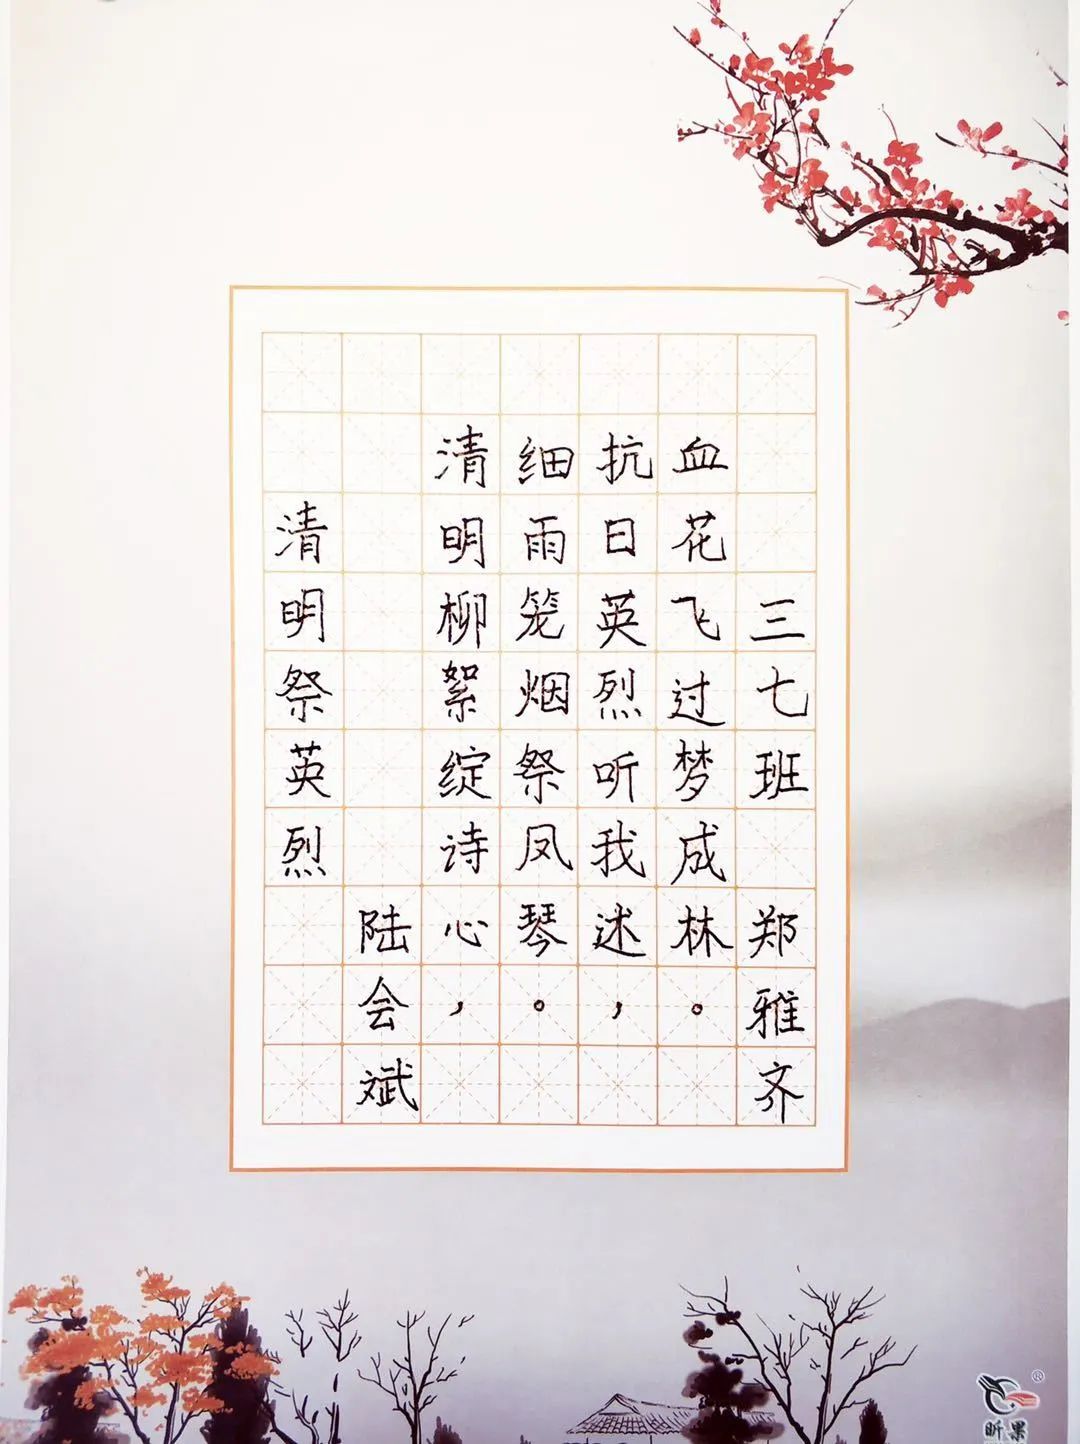 清明祭英烈
陆会斌
清明柳絮绽诗心，
细雨笼烟祭凤琴。
抗日英烈听我述，
血花飞过梦成林。
三七班 郑雅齐
昕果
®